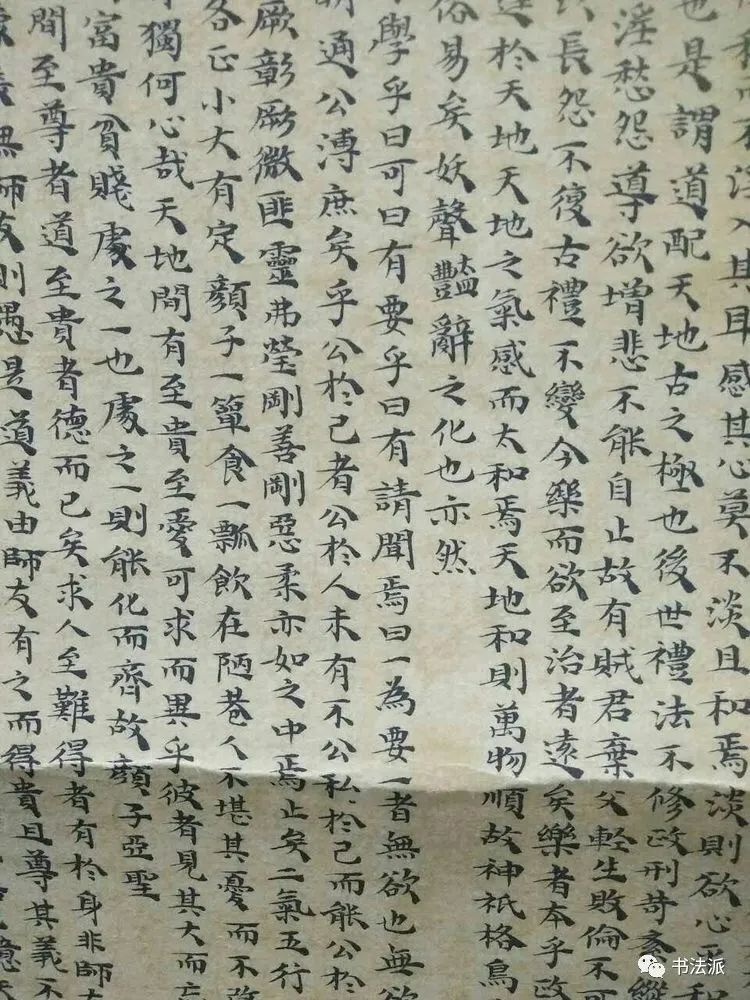 不淫入其耳感其心莫不淡且和焉淡則欲心平和
也是謂道配天地古之極也後世禮法不修政刑苛紊縱
淫愁怨導欲增悲不能自止故有賊君棄父輕生敗倫不可
長怨不復古禮不變今樂而欲至治者遠矣樂者本乎政
達於天地天地之氣感而太和焉天地和則萬物順故神祇格鳥
俗易矣妖聲豔辭之化也亦然
學乎曰可曰有要乎曰有請聞焉曰一為要一者無欲也無欲
明通公溥庶矣乎公於己者公於人未有不公私於己而能公於
厥彰厥微匪靈弗瑩剛善剛惡柔亦如之中焉止矣二氣五行
各正小大有定 顏子一簞食一瓢飲在陋巷人不堪其憂而不改
獨何心哉天地間有至貴至愛可求而異乎彼者見其大而忘
富貴貧賤處之一也處之一則能化而齊故顏子亞聖
間至尊者道至貴者德而已矣求人至難得者有於身非師友
義無師友則愚是道義由師友有之而得貴且尊其義不
书法派